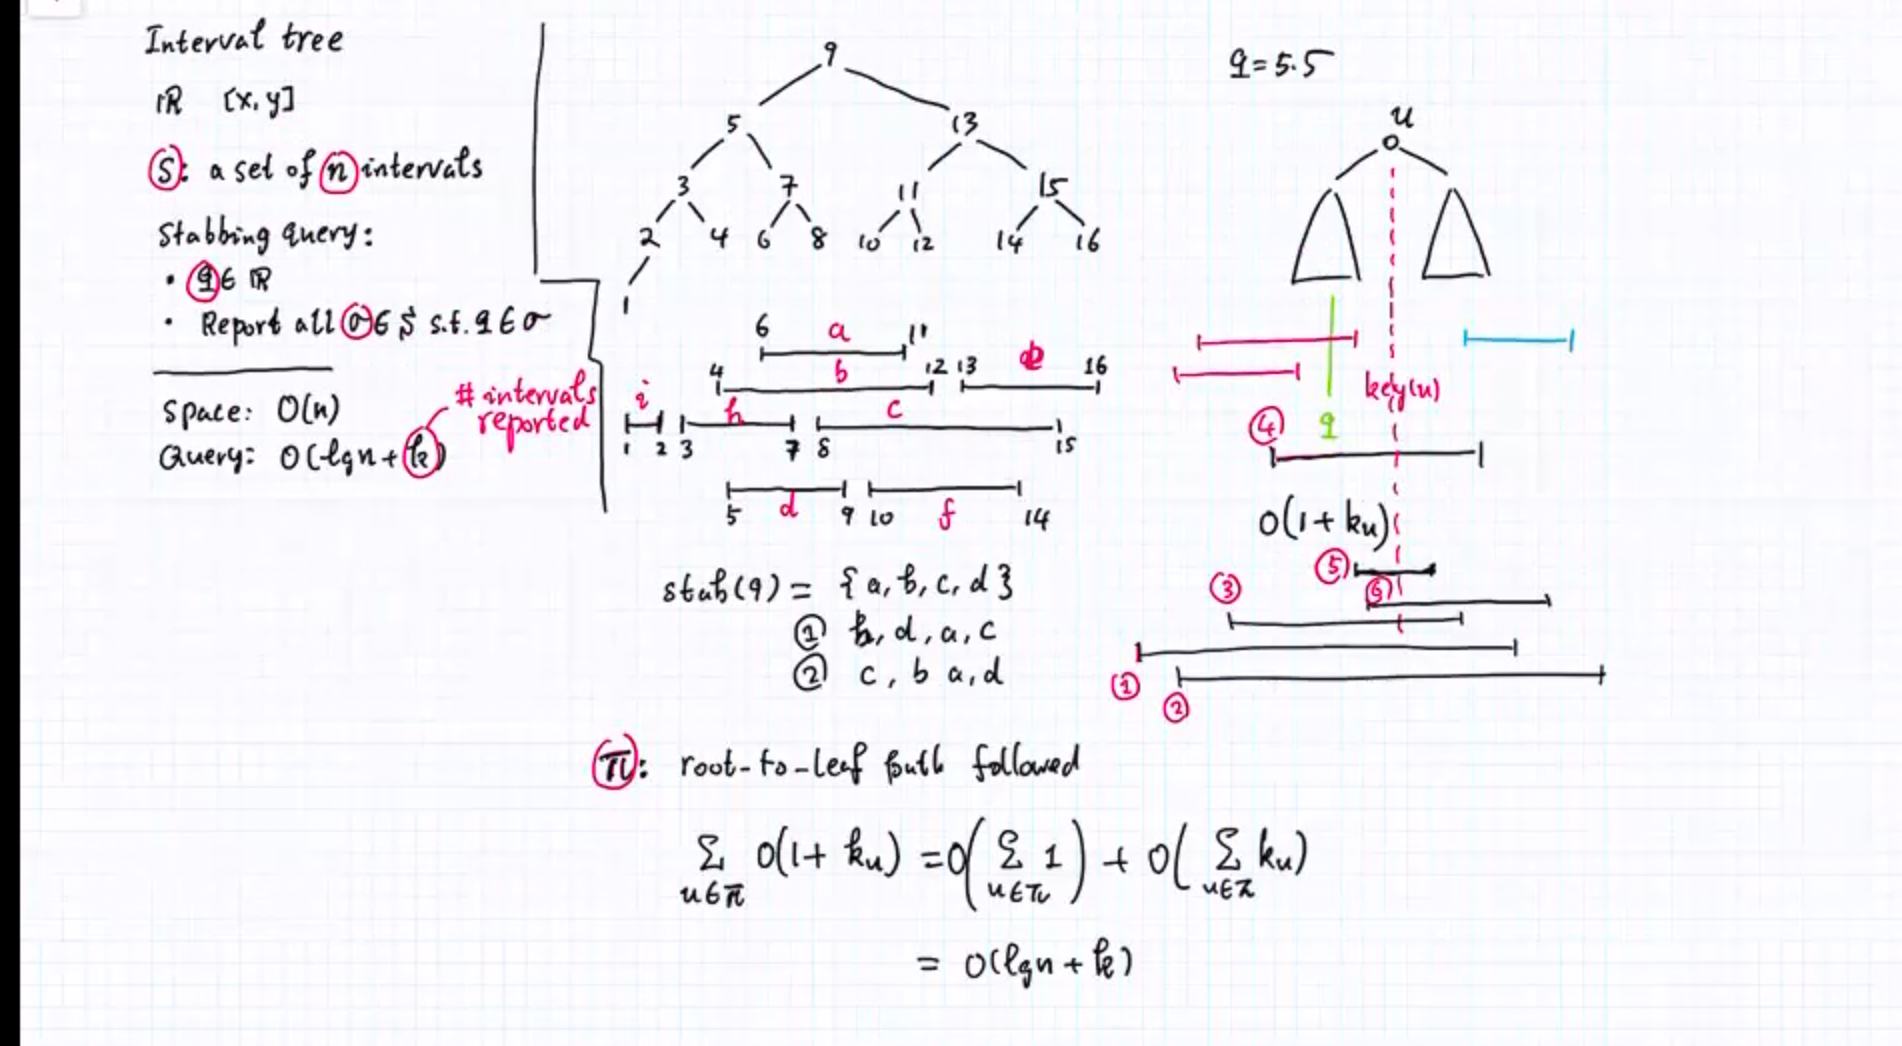 Interval tree
ℝ [x, y]
S: a set of n intervals
Stabbing query:
• q ∈ ℝ
• Report all σ ∈ S s.t. q ∈ σ
Space: O(n)
Query: O(lg n + k)
# intervals
reported
9
5 13
3 7 11 15
2 4 6 8 10 12 14 16
1
6 a 11
4 b 12 13 e 16
i h c
1 2 3 7 8 15
d f
5 9 10 14
stab(9) = {a, b, c, d}
① b, d, a, c
② c, b a, d
q = 5.5
u
key(u)
④ q
O(1 + k_u)
⑤
③ ⑥
①
②
π: root-to-leaf path followed
∑_{u∈π} O(1 + k_u) = O(∑_{u∈π} 1) + O(∑_{u∈π} k_u)
= O(lg n + k)